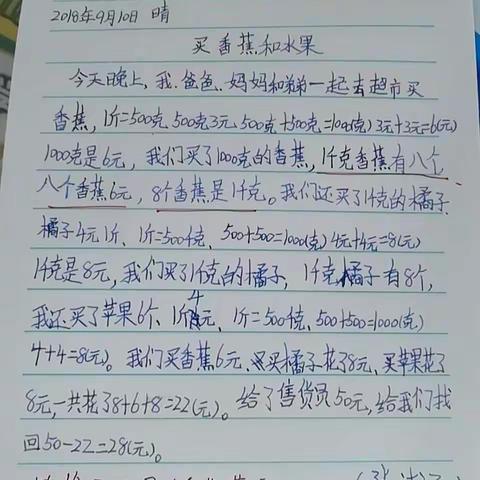 2018年9月10日 晴
买香蕉和水果
今天晚上,我.爸爸.妈妈和弟弟一起去超市买
香蕉,1斤=500克,500克3元,500克+500克=1000(克)3元+3元=6(元)
1000克是6元,我们买了1000克的香蕉,1千克香蕉有八个
八个香蕉6元,8个香蕉是1千克。我们还买了1千克的橘子.
橘子4元1斤、1斤=500克,500+500=1000(克)4元+4元=8(元)
1千克是8元,我们买了1千克的橘子,1千克橘子有8个,
我还买了苹果6个、1斤4元、1斤=500克,500+500=1000(克)
4+4=8(元)。我们买香蕉6元、买橘子花了8元,买苹果花了
8元,一共花了8+6+8=22(元)。给了售货员50元,给我们找
回50-22=28(元)。